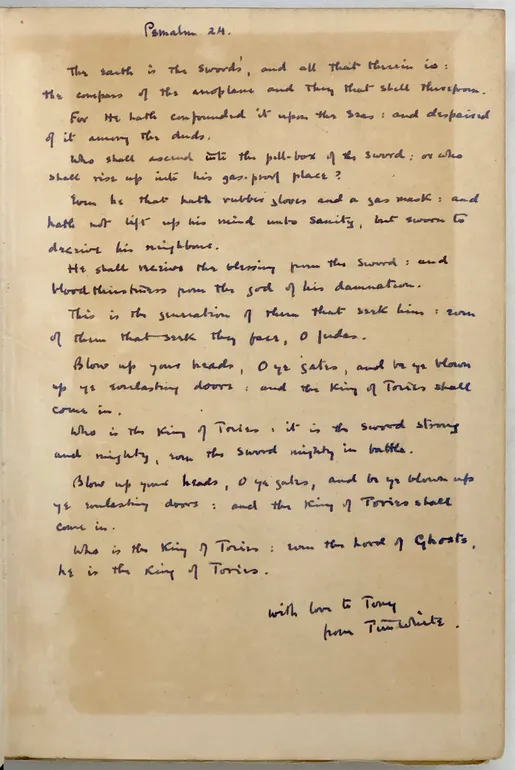 Psmalm 24.
The earth is the Sword's, and all that therein is:
the compass of the aeroplane and they that shell therefrom.
For He hath confounded it upon the seas: and despaired
of it among the duds.
Who shall ascend into the pill-box of the Sword: or who
shall rise up into his gas-proof place?
Even he that hath rubber gloves and a gas mask: and
hath not lift up his mind unto Sanity, but sworn to
deceive his neighbour.
He shall receive the blessing from the Sword: and
bloodthirstiness from the god of his damnation.
This is the generation of them that seek him: even
of them that seek thy face, O Judas.
Blow up your heads, O ye gates, and be ye blown
up ye everlasting doors: and the King of Tories shall
come in.
Who is the King of Tories: it is the sword strong
and mighty, even the Sword mighty in battle.
Blow up your heads, O ye gates, and be ye blown up
ye everlasting doors: and the King of Tories shall
come in.
Who is the King of Tories: even the Lord of Ghosts,
he is the King of Tories.
with love to Tony
from Tim White.